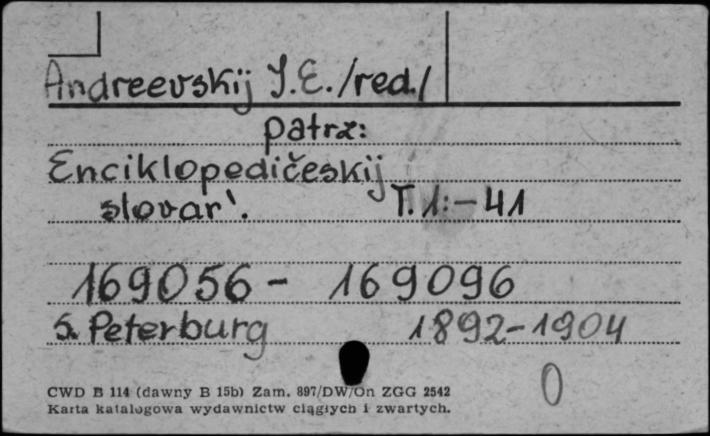 Andreevskij I.E. /red./
patrz:
Enciklopedičeskij
slovar'. T. 1:-41
169056 - 169096
S. Peterburg 1892-1904
0
CWD B 114 (dawny B 15b) Zam. 897/DW/On ZGG 2542
Karta katalogowa wydawnictw ciągłych i zwartych.